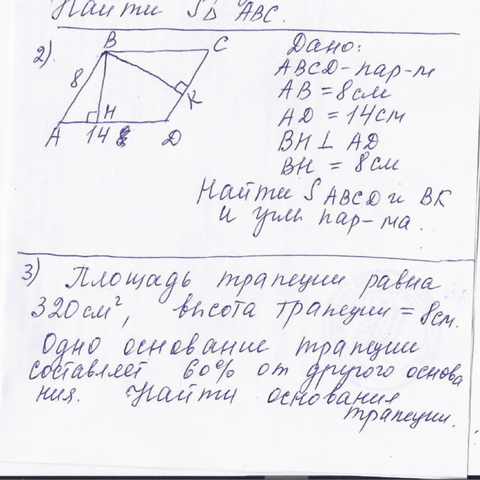 Найти S△ ABC.
2).
B
C
8
K
H
A
14
D
Дано:
ABCD-пар-м
AB = 8см
AD = 14см
BH ⊥ AD
BH = 8см
Найти S ABCD и BK
и углы пар-ма.
3) Площадь трапеции равна
320см², высота трапеции = 8см.
Одно основание трапеции
составляет 60% от другого основа
ния. Найти основания
трапеции.